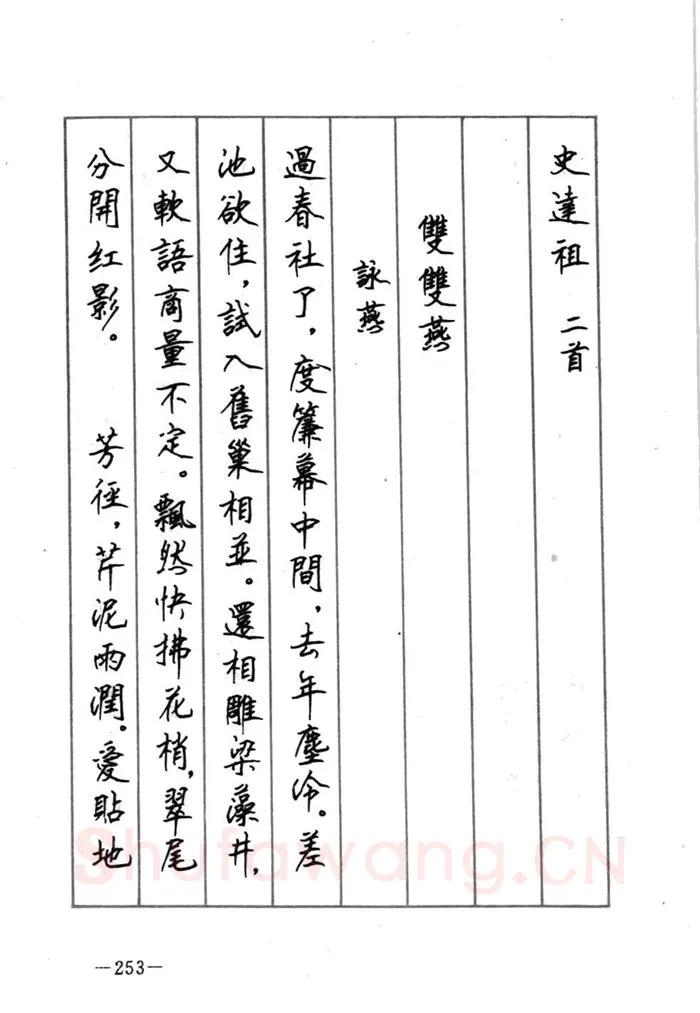 史達祖 二首
雙雙燕
詠燕
過春社了，度簾幕中間，去年塵冷。差
池欲住，試入舊巢相並。還相雕梁藻井，
又軟語商量不定。飄然快拂花梢，翠尾
分開红影。 芳徑，芹泥雨潤。愛貼地
Shufawang.CN
—253—